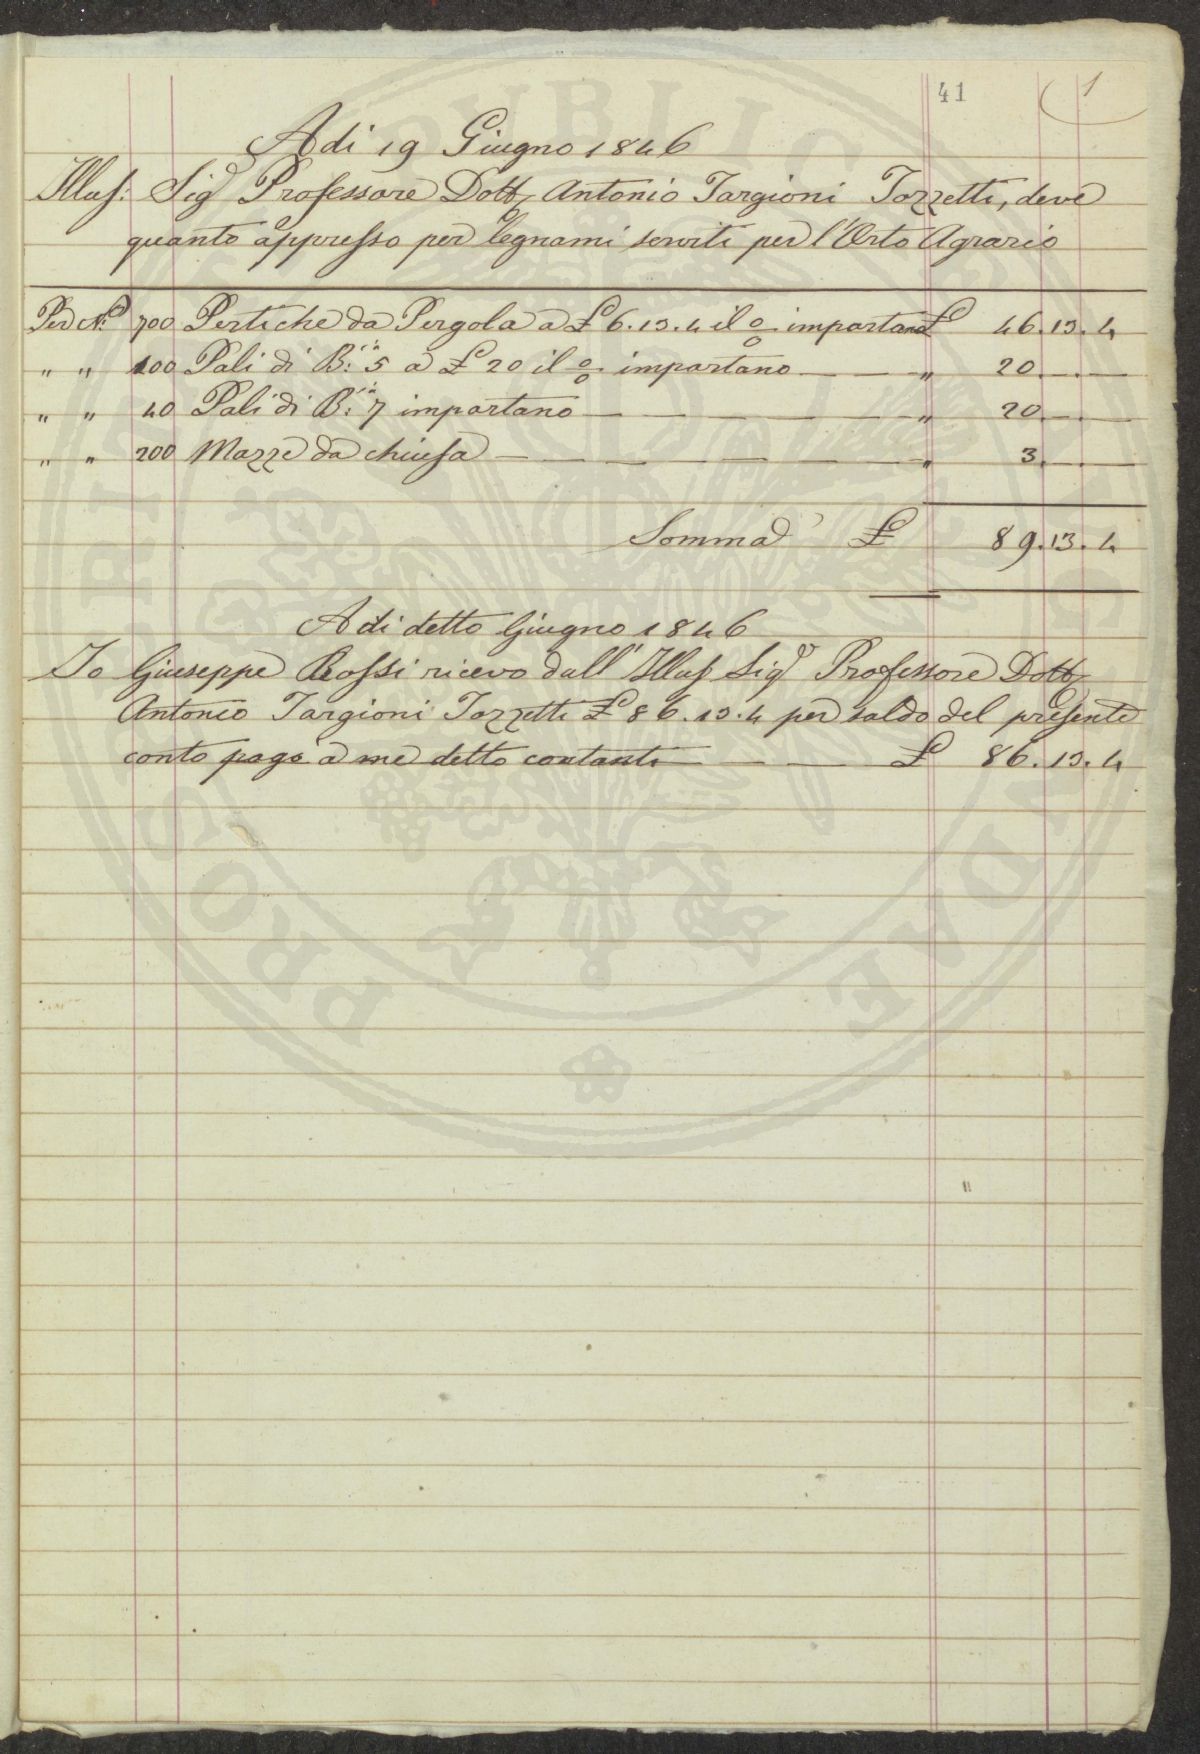 41
1
Adi 19 Giugno 1846
Illus: Sigr Professore Dott Antonio Targioni Tozzetti, deve
quanto appresso per legnami serviti per l'Orto Agrario
Per No 700 Pertiche da Pergola a £ 6.13.4 il % importano £ 46.13.4
" " 100 Pali di B:ia 5 a £ 20 il % importano — " 20.—.—
" " 40 Pali di B:ia 7 importano — " 20.—.—
" " 200 Mazze da chiusa — " 3.—.—
Somma £ 89.13.4
Adi detto Giugno 1846
Io Giuseppe Rossi ricevo dall' Illus Sigr Professore Dott
Antonio Targioni Tozzetti £ 86.13.4 per saldo del presente
conto pago a me detto contanti — £ 86.13.4